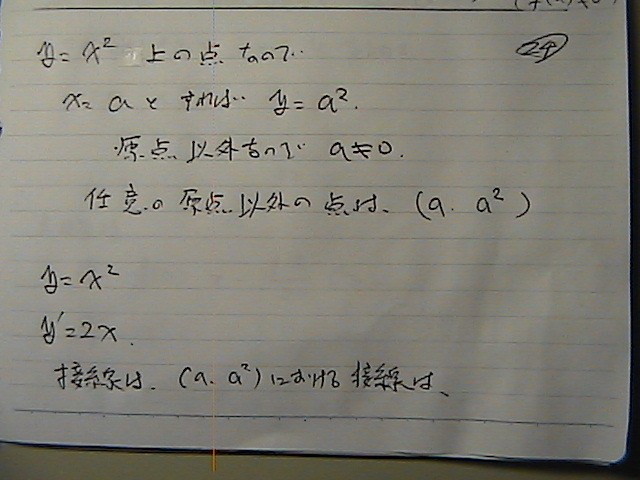 y=x² 上の点なので
x=aとすれば y=a².
原点以外なので a≠0.
任意の原点以外の点は、(a. a²)
y=x²
y'=2x.
接線は、(a. a²)における接線は、